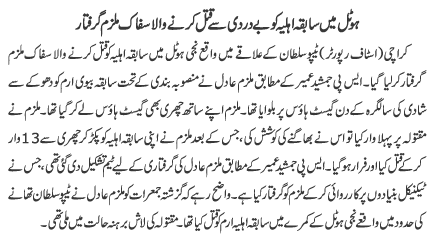 ہوٹل میں سابقہ اہلیہ کو بے دردی سے قتل کرنے والا سفاک ملزم گرفتار
کراچی (اسٹاف رپورٹر) ٹیپو سلطان کے علاقے میں واقع نجی ہوٹل میں سابقہ اہلیہ کو قتل کرنے والا سفاک ملزم
گرفتار کر لیا گیا۔ ایس پی جمشید عمیر کے مطابق ملزم عادل نے منصوبہ بندی کے تحت سابقہ بیوی ارم کو دھوکے سے
شادی کی سالگرہ کے دن گیسٹ ہاؤس پر بلوایا تھا۔ ملزم اپنے ساتھ چھری بھی گیسٹ ہاؤس لے کر گیا تھا۔ ملزم نے
مقتولہ پر پہلا وار کیا تو اس نے بھاگنے کی کوشش کی، جس کے بعد ملزم نے اپنی سابقہ اہلیہ کو پکڑ کر چھری سے 13 وار
کر کے قتل کیا اور فرار ہو گیا۔ ایس پی جمشید عمیر کے مطابق ملزم عادل کی گرفتاری کے لیے ٹیم تشکیل دی گئی تھی، جس نے
ٹیکنیکل بنیادوں پر کارروائی کر کے ملزم کو گرفتار کیا ہے۔ واضح رہے کہ گزشتہ جمعرات کو ملزم عادل نے ٹیپو سلطان تھانے
کی حدود میں واقع نجی ہوٹل کے کمرے میں سابقہ اہلیہ ارم کو قتل کیا تھا۔ مقتولہ کی لاش برہنہ حالت میں ملی تھی۔